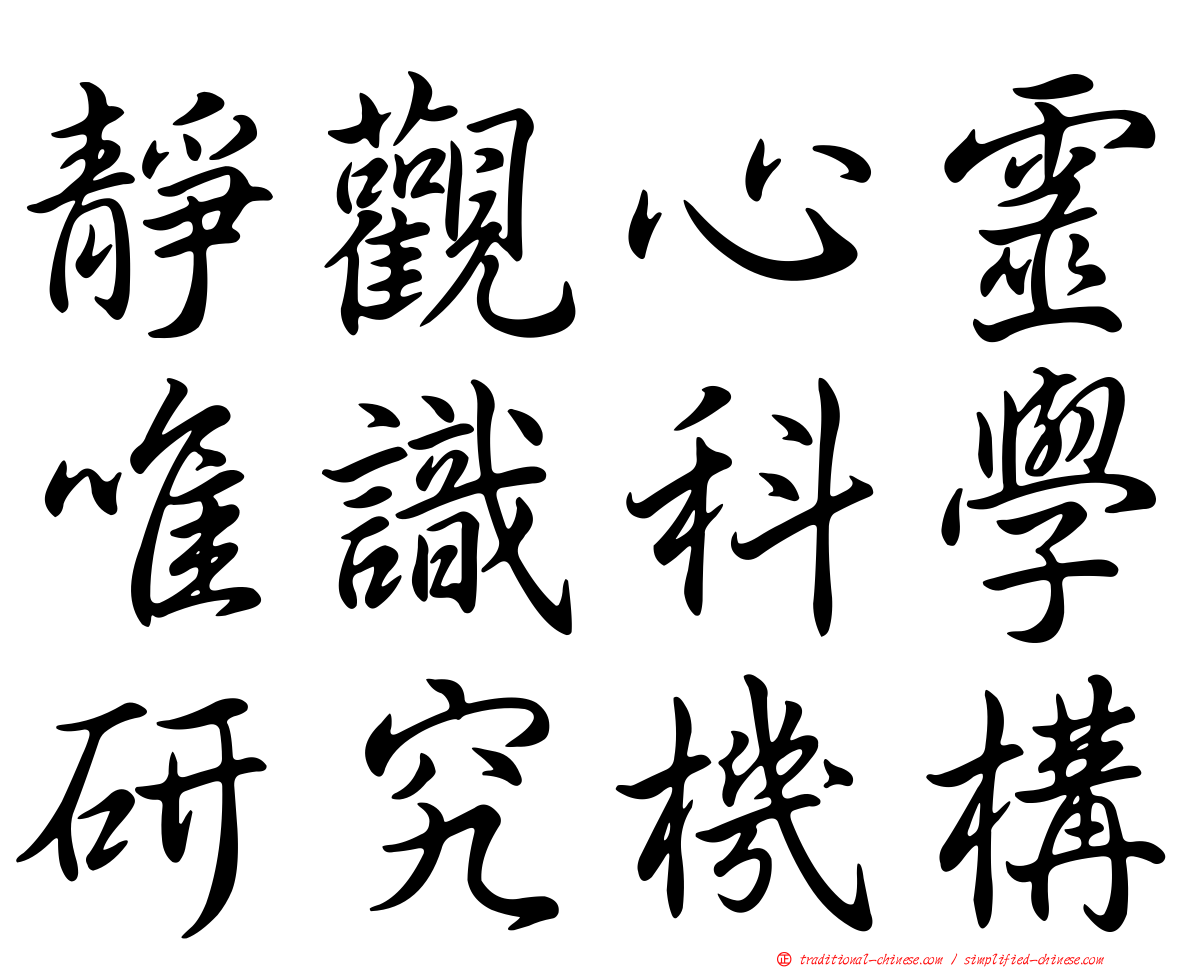 靜觀心靈
唯識科學
研究機構
㊣ traditional-chinese.com / simplified-chinese.com